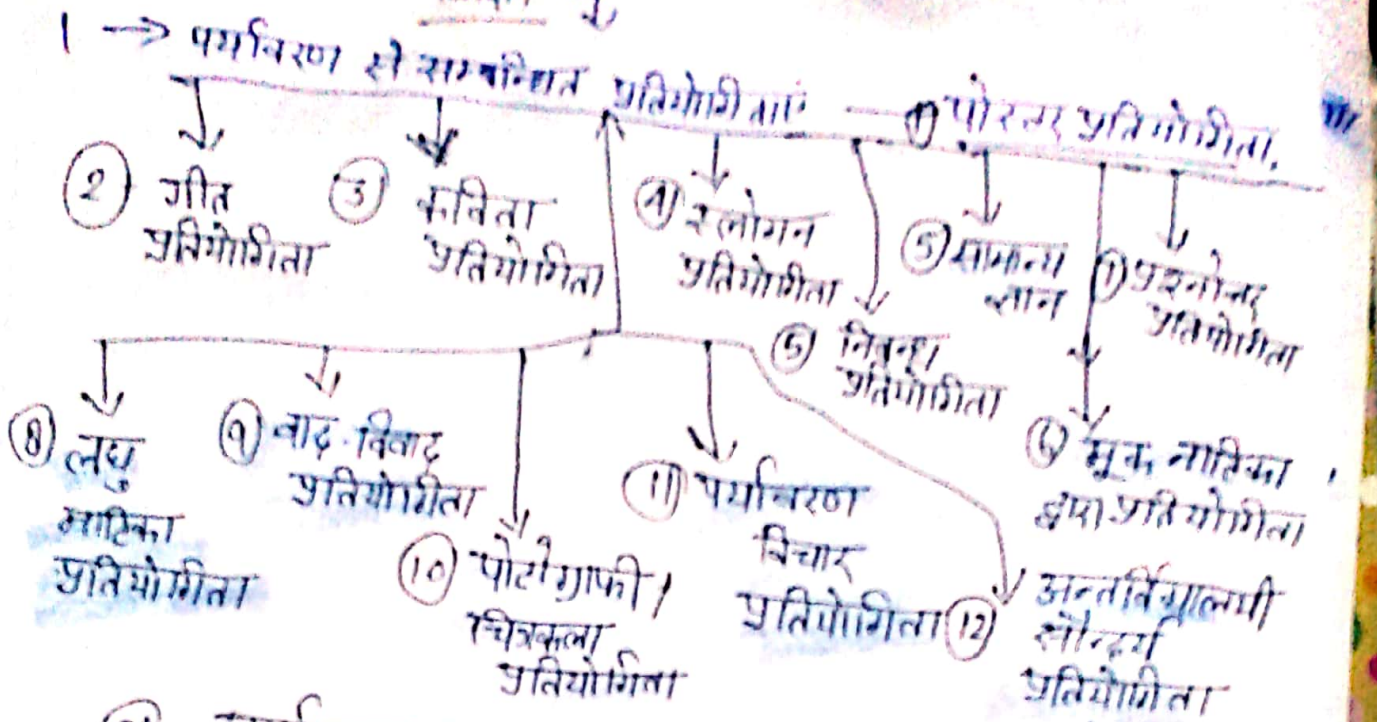 1 → पर्यावरण से सम्बन्धित प्रतियोगिताएं — ① पोस्टर प्रतियोगिता,
② गीत
प्रतियोगिता
③ कविता
प्रतियोगिता
④ स्लोगन
प्रतियोगिता
⑤ सामान्य
ज्ञान
① प्रश्नोत्तर
प्रतियोगिता
⑤ निबन्ध
प्रतियोगिता
⑥ मूक नाटिका
द्वारा प्रतियोगिता
⑧ लघु
नाटिका
प्रतियोगिता
⑨ वाद-विवाद
प्रतियोगिता
⑩ पोटोग्राफी /
चित्रकला
प्रतियोगिता
⑪ पर्यावरण
विचार
प्रतियोगिता
⑫ अन्तर्विद्यालयी
सौन्दर्य
प्रतियोगिता